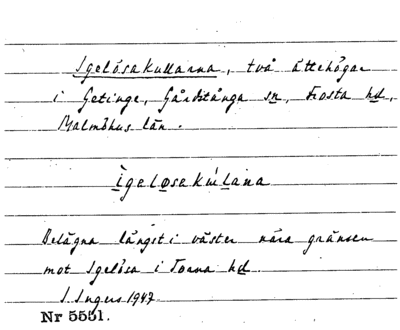 Igelösakullarna, två ättehögar
i Getinge, Gårdstånga sn, Frosta hd,
Malmöhus län.
ìgeløsakúlana
Belägna längst i väster nära gränsen
mot Igelösa i Torna hd.
I. Ingers 1947
Nr 5551.